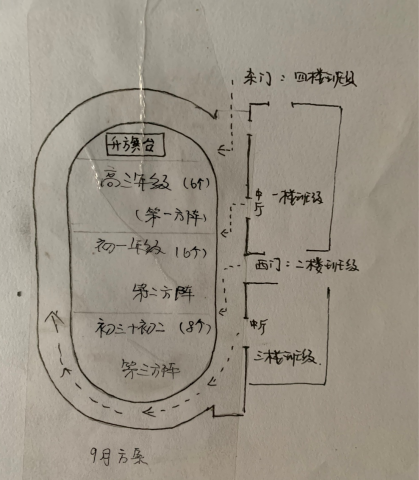 东门：四楼班级
升旗台
高三年级（6个）
（第一方阵）
中厅
一楼班级
初一年级（6个）
西门：二楼班级
第二方阵
初三十初二（8个）
中厅
第三方阵
三楼班级
9月方案